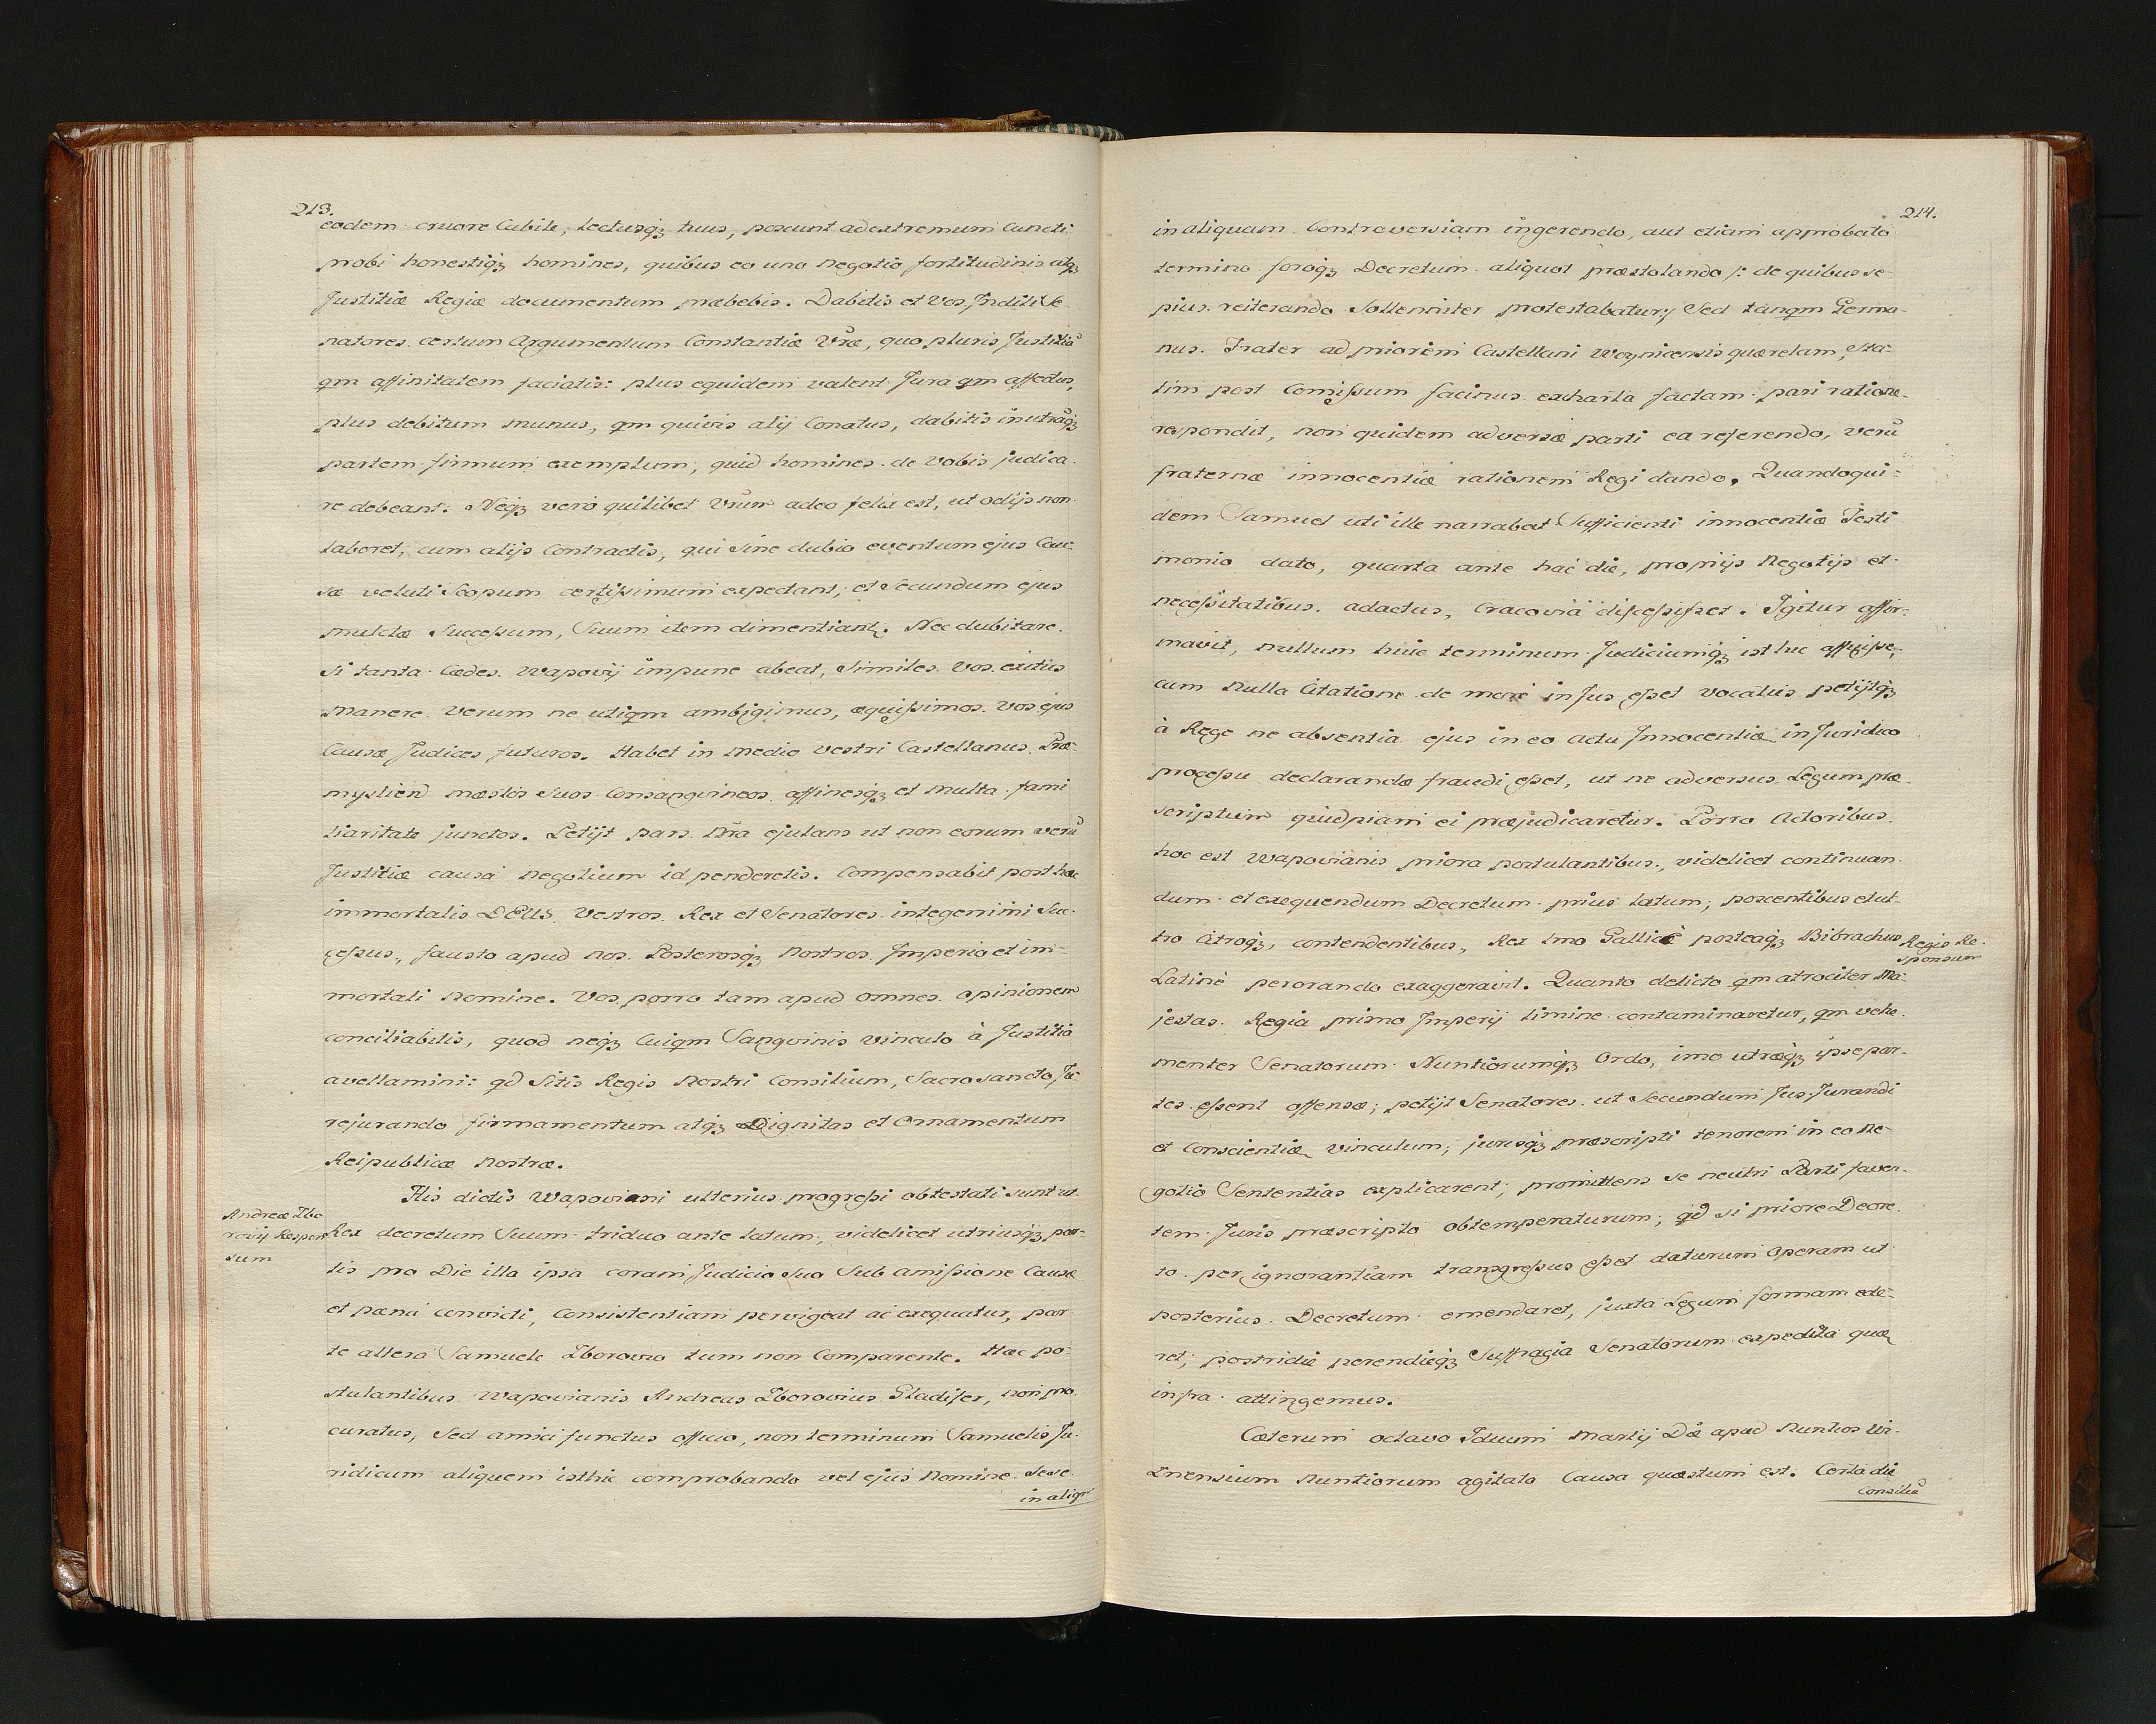 213.
eodem cruore Cubile, lectusqꝫ tuus, poscunt ad extremum Cuncti
probi honestiqꝫ homines, quibus eo uno Negotio fortitudinis atqꝫ
Justitiæ Regiæ documentum præbebis. Dabitis et Vos, Incliti Se-
natores certum Argumentum Constantiæ Vræ, quo pluris Justitiã
qm affinitatem faciatis: plus equidem valent Jura qm affectus,
plus debitum munus, qm quivis alij Conatus, dabitis in utrãqꝫ
partem firmum exemplum, quid homines de Vobis judica-
re debeant. Neqꝫ verò quilibet Vrũm adeo felix est, ut odijs non
laboret, cum alijs Contractis, qui sine dubio eventum ejus Cau-
sæ veluti Scopum certissimum expectant, et Secundum ejus
mulctæ Successum, Suum item dimentiant. Nec dubitare
si tanta Cædes Wapovij impune abeat, Similes Vos exitus
Manere. Verum ne utiqm ambigimus, æquissimos Vos ejus
Causæ Judices futuros. Habet in Medio Vestri Castellanus Præ-
myslien mæstos Suos Consangvineos affinesqꝫ et Multa fami
liaritate junctos. Petijt pars Nra ejulans ut non eorum verũ
Justitiæ causâ Negotium id penderetis. Compensabit post hæc
immortalis DEUS Vestros Rex et Senatores integerrimi Suc-
cessus, fausto apud nos Posterosqꝫ Nostros Imperio et im-
mortali Nomine. Vos porro tam apud omnes opinionem
conciliabitis, quod neqꝫ Cuiqm Sangvinis vinculo à Justitia
avellamini: qd Sitis Regis Nostri Consilium, Sacrosancto, Ju-
rejurando firmamentum atqꝫ Dignitas et Ornamentum
Reipublicæ Nostræ.
His dictis Wapoviani ulterius progressi obtestati sunt ut
Andreæ Zbo
rovij Respon
sum
Rex decretum Suum triduo ante latum, videlicet utriusqꝫ par-
tis pro Die illa ipsa coram Judicio Suo Sub amissione Causæ
et pænâ convicti, Consistentiam pervigeat ac exequatur, par
te alterâ Samuele Zborovio tum non Comparente. Hæc po-
stulantibus Wapovianis Andreas Zborovius Gladifer, non pro
curatus, Sed amici functus officio, non terminum Samuelis Ju-
ridicum aliquem isthic comprobando vel ejus Nomine Sese
in aliqm
214.
in aliquam Controversiam ingerendo, aut etiam approbato
termino foroqꝫ Decretum aliquot præstolando /: de quibus se-
pius reiterando Sollenniter protestabatur:/ Sed tanqm Germa-
nus Frater ad priorem Castellani Woynicensis quærelam, Sta-
tim post Comissum facinus exchartâ factam pari ratione
respondit, non quidem adversæ parti ea referendo, verũ
fraternæ innocentiæ rationem Regi dando. Quandoqui-
dem Samuel uti ille narrabat Sufficienti innocentiæ Testi
monio dato, quarta ante hac die, proprijs Negotijs et
necessitatibus adactus, Cracoviâ discessisset. Igitur affir-
mavit, nullum huic terminum Judiciumqꝫ isthic affuisse,
cum Nulla Citatione de more in Jus esset vocatus petijtqꝫ
à Rege ne absentia ejus in eo Actu Innocentiæ in Juridico
processu declarandæ fraudi esset, ut ne adversus Legum præ-
scriptum quidpiam ei præjudicaretur. Porro Actoribus
hoc est Wapovianis priora postulantibus, videlicet continuan
dum et exequendum Decretum prius latum; poscentibus et ul-
tro Citroqꝫ, contendentibus, Rex Imo Gallicè posteaqꝫ Bibrachus
Regis Re-
sponsum
Latinè perorando exaggeravit. Quanto delicto qm atrociter Ma-
jestas Regia primo Imperij limine contaminaretur, qm vehe-
menter Senatorum Nuntiorumqꝫ Ordo, imo utræqꝫ ipsæ par-
tes essent offensæ; petijt Senatores ut Secundum Jus Jurandi
et Conscientiæ vinculum, jurisqꝫ præscripti tenorem in eo Ne-
gotio Sententias explicarent; promittens se neutri Parti faven-
tem Juris præscripto obtemperaturum; qd si priore Decre-
to per ignorantiam transgressus esset daturum Operam ut
posterius Decretum emendaret, juxta Legum formam ede-
ret; postridie perendieqꝫ Suffragia Senatorum expedita quæ
infra attingemus.
Cæterum octavo Iduum Martij Die apud Nuntios
Nuntiorum agitata Causa quæstum est. Certa die
Consiliũ